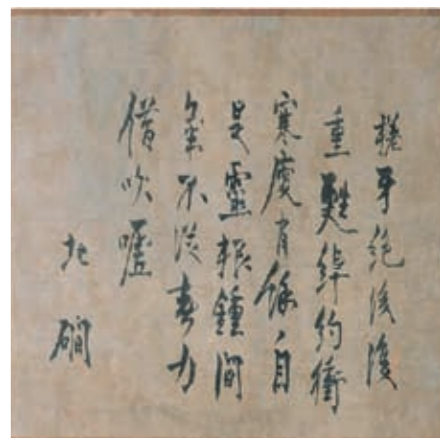 槎牙絕後復
重甦綽約衝
寒度有餘自
是靈根鍾間
氣不從春力
借吹噓
北磵